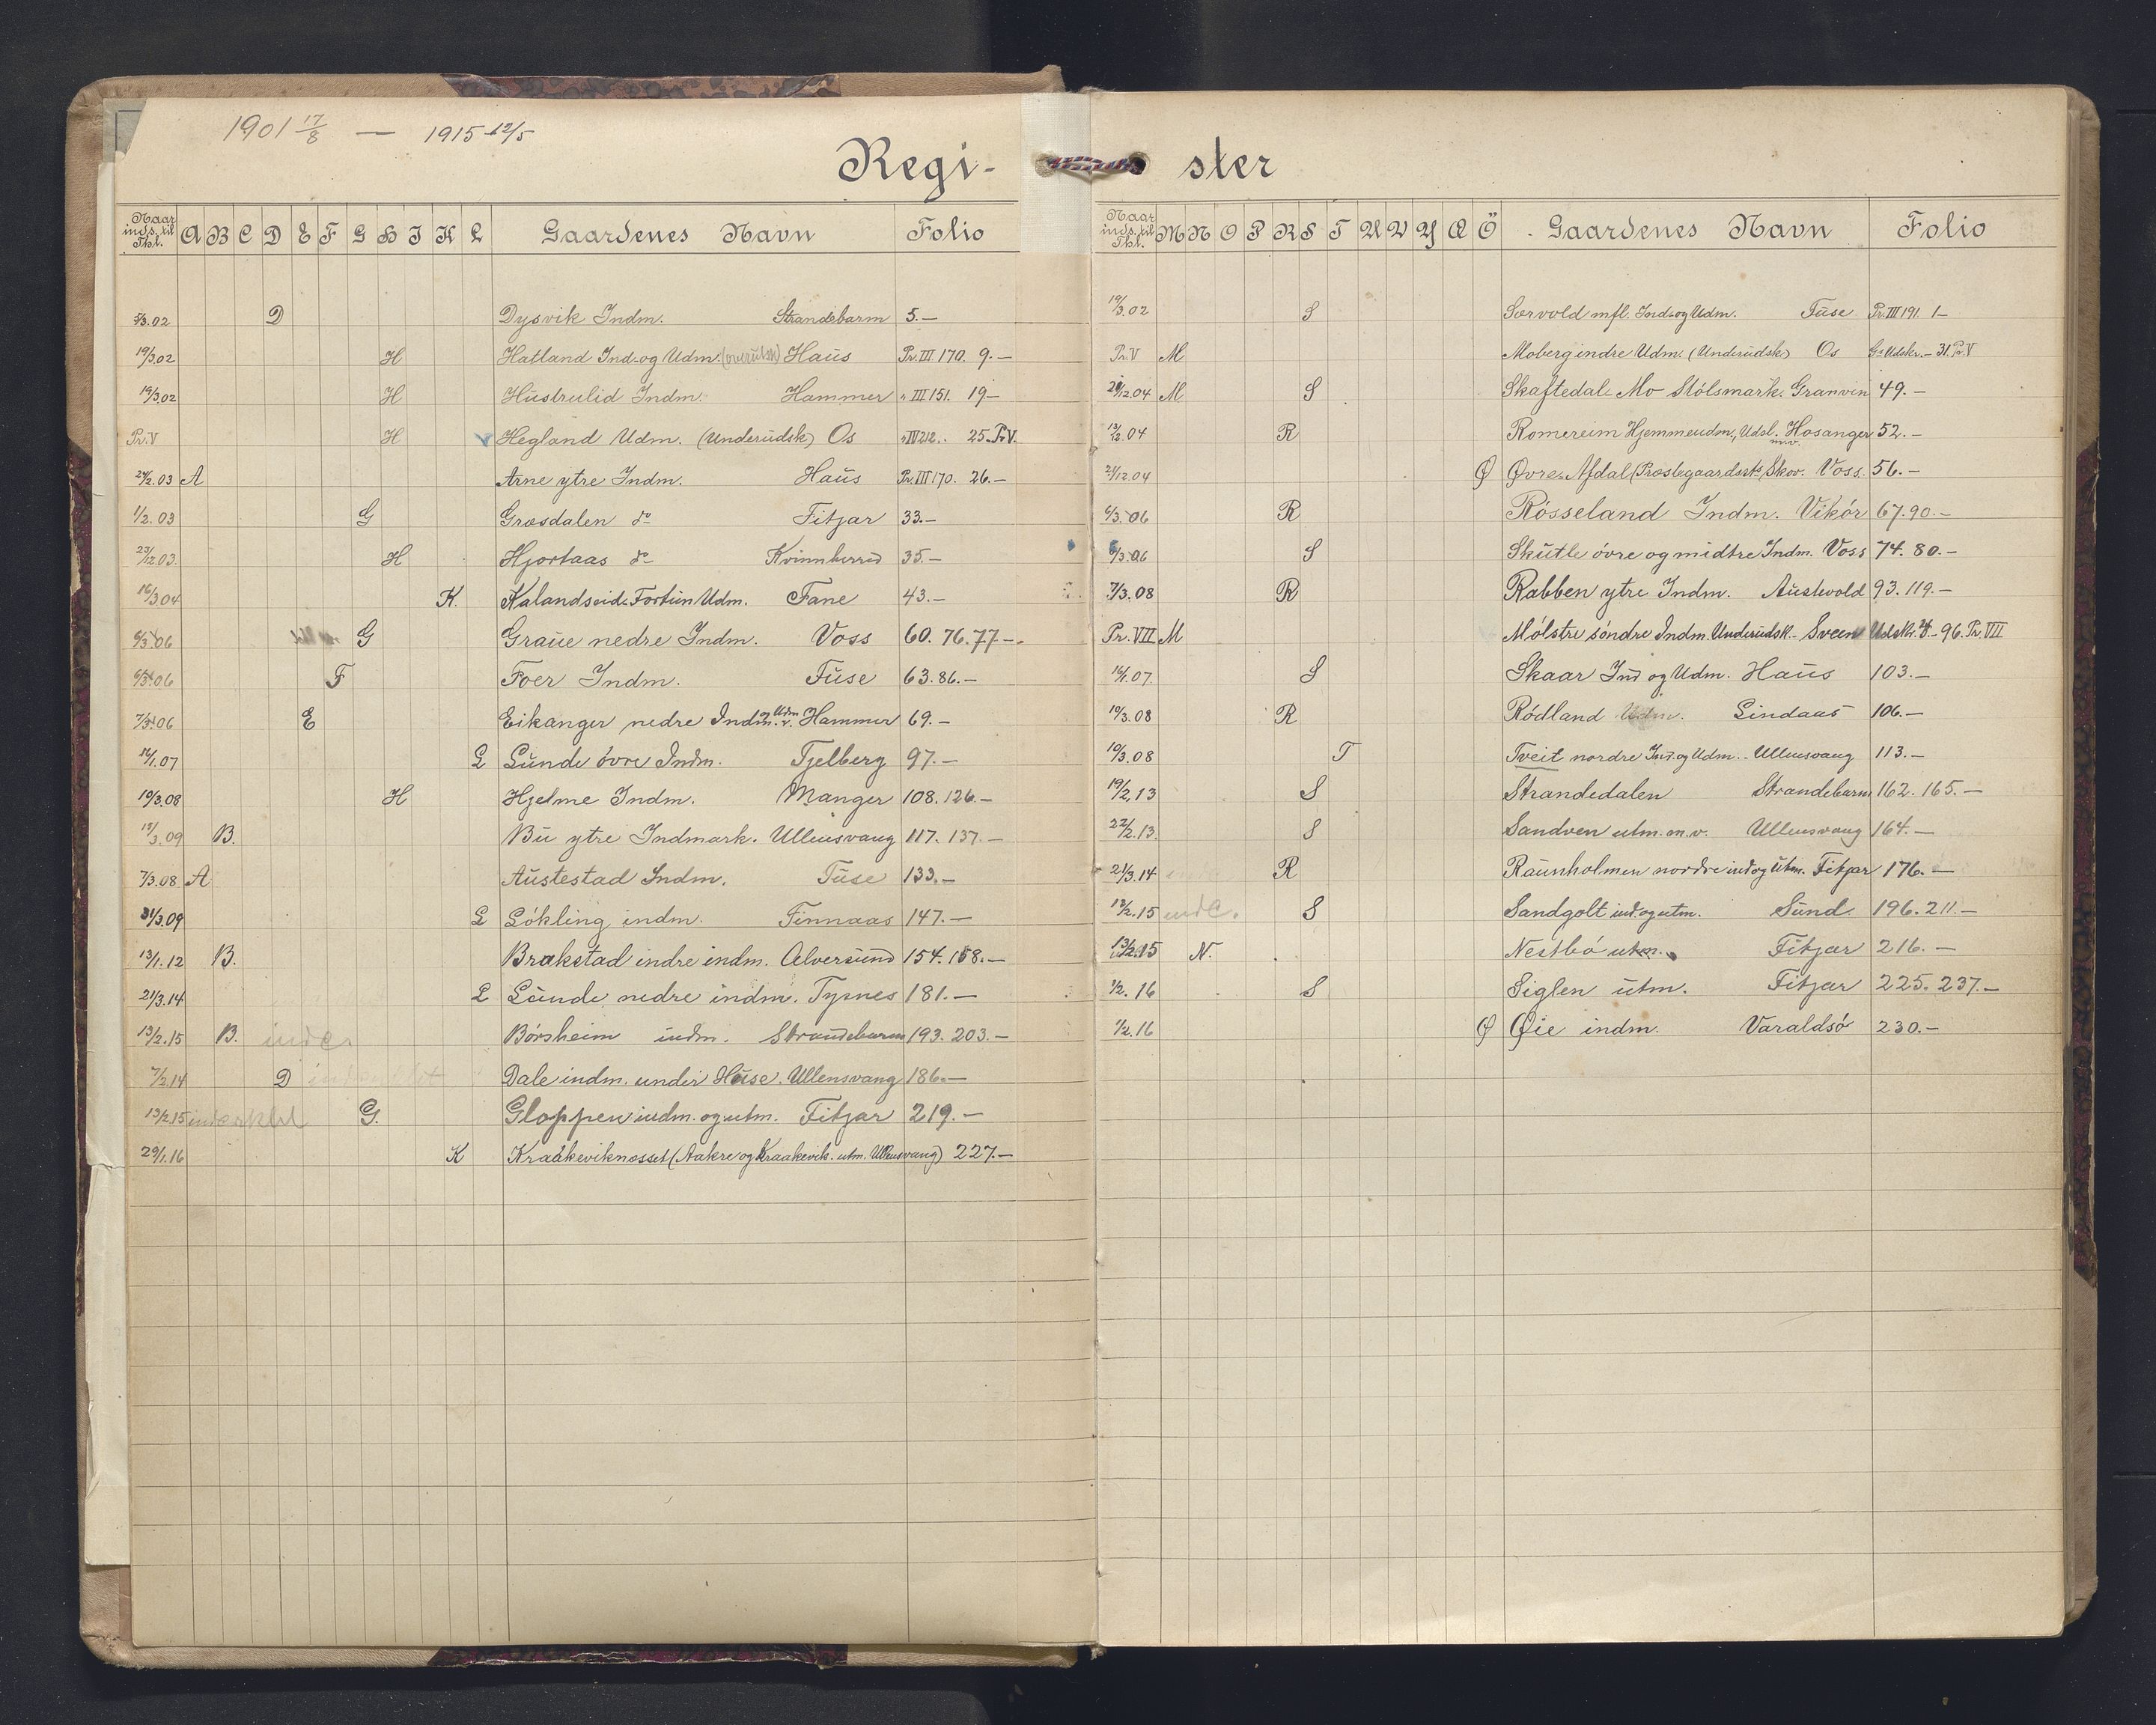 1901 17/8 — 1915 12/5
Regi-
Naar inds. til Tkl. A B C D E F G H I K L Gaardenes Navn Folio
5/3.02 D Dysvik Indm. Strandebarm 5.—
19/3.02 H Hatland Ind- og Udm. (overudsk) Haus Pr. III 170. 9.—
19/3.02 H Hustrulid Indm. Hammer " III 151. 19—
Pr. V H Hegland Udm. (Underudsk) Os " IV 212. 25. Pr. V.
24/2.03 A Arne ytre Indm. Haus Pr. III 170. 26.—
1/2.03 G Græsdalen do Fitjar 33.—
23/12.03 H Hjortaas do Kvinnherred 35.—
16/3.04 K. Kalandseid & Fortun Udm. Fane 43.—
6/3.06 G Graue nedre Indm. Voss 60. 76. 77—
6/3.06 F Foer Indm. Fuse 63. 86.—
7/3.06 E Eikanger nedre Indm. Udm. m.v. Hammer 69.—
14/1.07 L Lunde övre Indm. Tjelberg 97.—
10/3.08 H Hjelme Indm. Manger 108. 126.—
15/3.09 B. Bu ytre Indmark. Ullensvang 117. 137.—
7/3.08 A Austestad Indm. Fuse 133.—
31/3.09 L Lökling indm. Finnaas 147.—
13/1.12 B. Brakstad indre indm. Alversund 154. 158.—
21/3.14 L Lunde nedre indm. Tysnes 181.—
13/2.15 B. inde. Börsheim indm. Strandebarm 193. 203.—
7/2.14 D Dale indm. under Huse. Ullensvang 186.—
13/2.15 G. Gloppen indm. og utm. Fitjar 219.—
29/1.16 K Kraakeviknesset (Aakre og Kraakevik. utm. Ullensvang) 227.—
ster
Naar inds. til Tkl. M N O P R S T U V Y Æ Ö Gaardenes Navn Folio
19/3.02 S Sørvold mfl. Ind- og Udm. Fuse Pr. III 191. 1—
Pr. V M Moberg indre Udm. (Underudsk) Os Gs Udskr.— 31. Pr. V
21/12.04 M S Skaftedal & Mo Stólsmark. Granvin 49.—
13/12.04 R Romereim Hjemmeudm., Udsl. m.v. Hosanger 52.—
21/12.04 Ø Övre Afdal (Præstegaards Skov. Voss. 56.—
6/3.06 R Rösseland Indm. Vikör 67. 90.—
6/3.06 S Skutle övre og midtre Indm. Voss 74. 80.—
7/3.08 R Rabben ytre Indm. Austevold 93. 119.—
Pr. VII M Mölstre söndre Indm. Underudsk. Sveen Udskr. 96. Pr. VII
14/1.07 S Skaar Ind og Udm. Haus 103.—
10/3.08 R Rödland Udm. Lindaas 106.—
10/3.08 T Tveit nordre Ind. og Udm. Ullensvang 113.—
19/2.13 S Strandedalen Strandebarm 162. 165.—
22/2.13 S Sandven utm. m.v. Ullensvang 164.—
21/3.14 R Raunholmen nordre ind og utm. Fitjar 176.—
12/2.15 inde. S Sandgolt ind. og utm. Sund 196. 211.—
13/2.15 N. Nestbö utm. Fitjar 216.—
1/2.16 S Siglen utm. Fitjar 225. 237.—
1/2.16 Ø Øie indm. Varaldsö 230.—